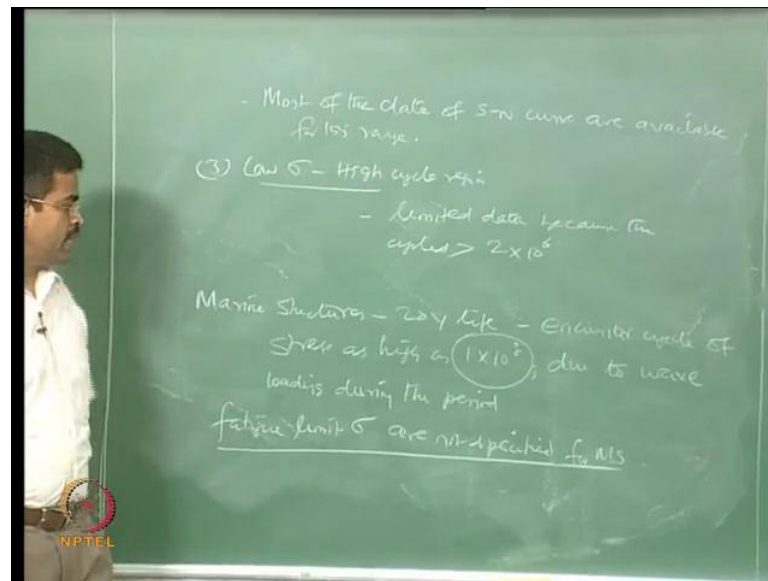 - Most of the data of S-N curve are available
for this range.
(3) Low σ - High cycle region
- limited data because the
cycles > 2 x 10⁶
Marine Structures - 20 y life - Encounter cycle of
stress as high as 1 x 10⁸, due to wave
loading during the period
fatigue limit σ are not specified for MS.
NPTEL